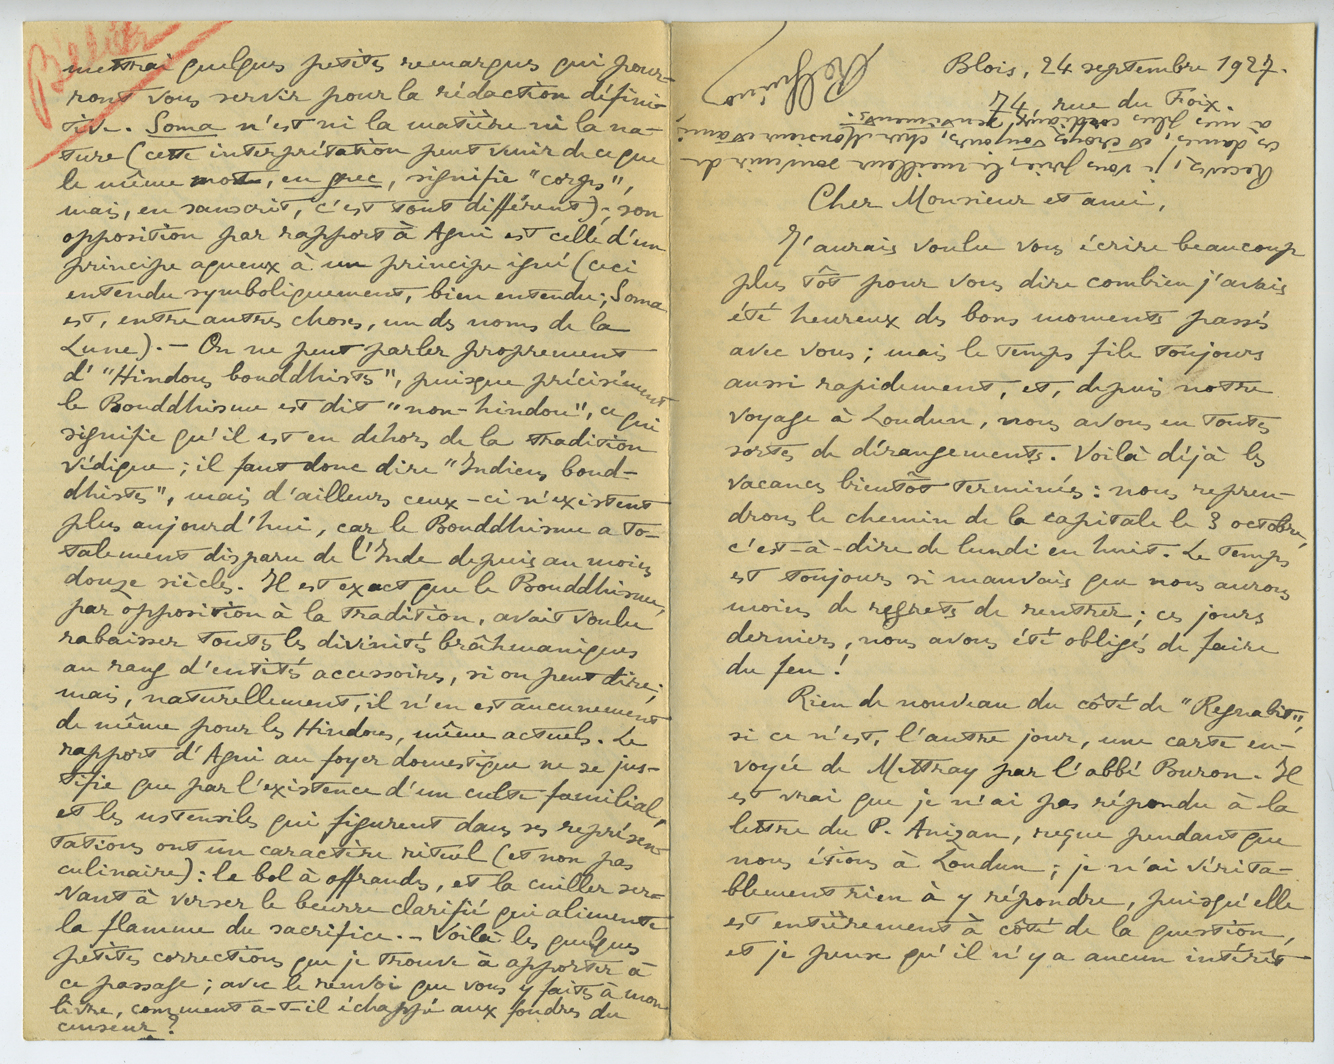 Blois, 24 septembre 1927.
74, rue du Foix.
Cher Monsieur et ami,
J'aurais voulu vous écrire beaucoup
plus tôt pour vous dire combien j'avais
été heureux des bons moments passés
avec vous ; mais le temps file toujours
aussi rapidement, et, depuis notre
voyage à Loudun, nous avons eu toutes
sortes de dérangements. Voilà déjà les
vacances bientôt terminées : nous repren-
drons le chemin de la capitale le 3 octobre,
c'est-à-dire de lundi en huit. Le temps
est toujours si mauvais que nous aurons
moins de regrets de rentrer ; ces jours
derniers, nous avons été obligés de faire
du feu !
Rien de nouveau du côté de "Regnabit",
si ce n'est, l'autre jour, une carte en-
voyée de Mettray par l'abbé Buron. Il
est vrai que je n'ai pas répondu à la
lettre du P. Anizan, reçue pendant que
nous étions à Loudun ; je n'ai vérita-
blement rien à y répondre, puisqu'elle
est entièrement à côté de la question,
et je pense qu'il n'y a aucun intérêt
Bélier
mettrai quelques petites remarques qui pour-
ront vous servir pour la rédaction défini-
tive. Soma n'est ni la matière ni la na-
ture (cette interprétation peut venir de ce que
le même mot, en grec, signifie "corps",
mais, en sanscrit, c'est tout différent) ; son
opposition par rapport à Agni est celle d'un
principe aqueux à un principe igné (ceci
entendu symboliquement, bien entendu ; Soma
est, entre autres choses, un des noms de la
Lune). — On ne peut parler proprement
d' "Hindous bouddhistes", puisque précisément
le Bouddhisme est dit "non-hindou", ce qui
signifie qu'il est en dehors de la tradition
védique ; il faut donc dire "Indiens boud-
dhistes", mais d'ailleurs ceux-ci n'existent
plus aujourd'hui, car le Bouddhisme a to-
talement disparu de l'Inde depuis au moins
douze siècles. Il est exact que le Bouddhisme,
par opposition à la tradition, avait voulu
rabaisser toutes les divinités brâhmaniques
au rang d'entités accessoires, si on peut dire ;
mais, naturellement, il n'en est aucunement
de même pour les Hindous, même actuels. Le
rapport d'Agni au foyer domestique ne se jus-
tifie que par l'existence d'un culte familial,
et les ustensiles qui figurent dans ses représen-
tations ont un caractère rituel (et non pas
culinaire) : le bol à offrandes, et la cuiller ser-
vant à verser le beurre clarifié qui alimente
la flamme du sacrifice. — Voilà les quelques
petites corrections que je trouve à apporter à
ce passage ; avec le renvoi que vous y faites à mon
livre, comment a-t-il échappé aux foudres du
censeur ?
Recevez, je vous prie, le meilleur souvenir de
ces dames, et croyez toujours, cher Monsieur et ami,
à mes plus cordiaux sentiments.
R. Guénon